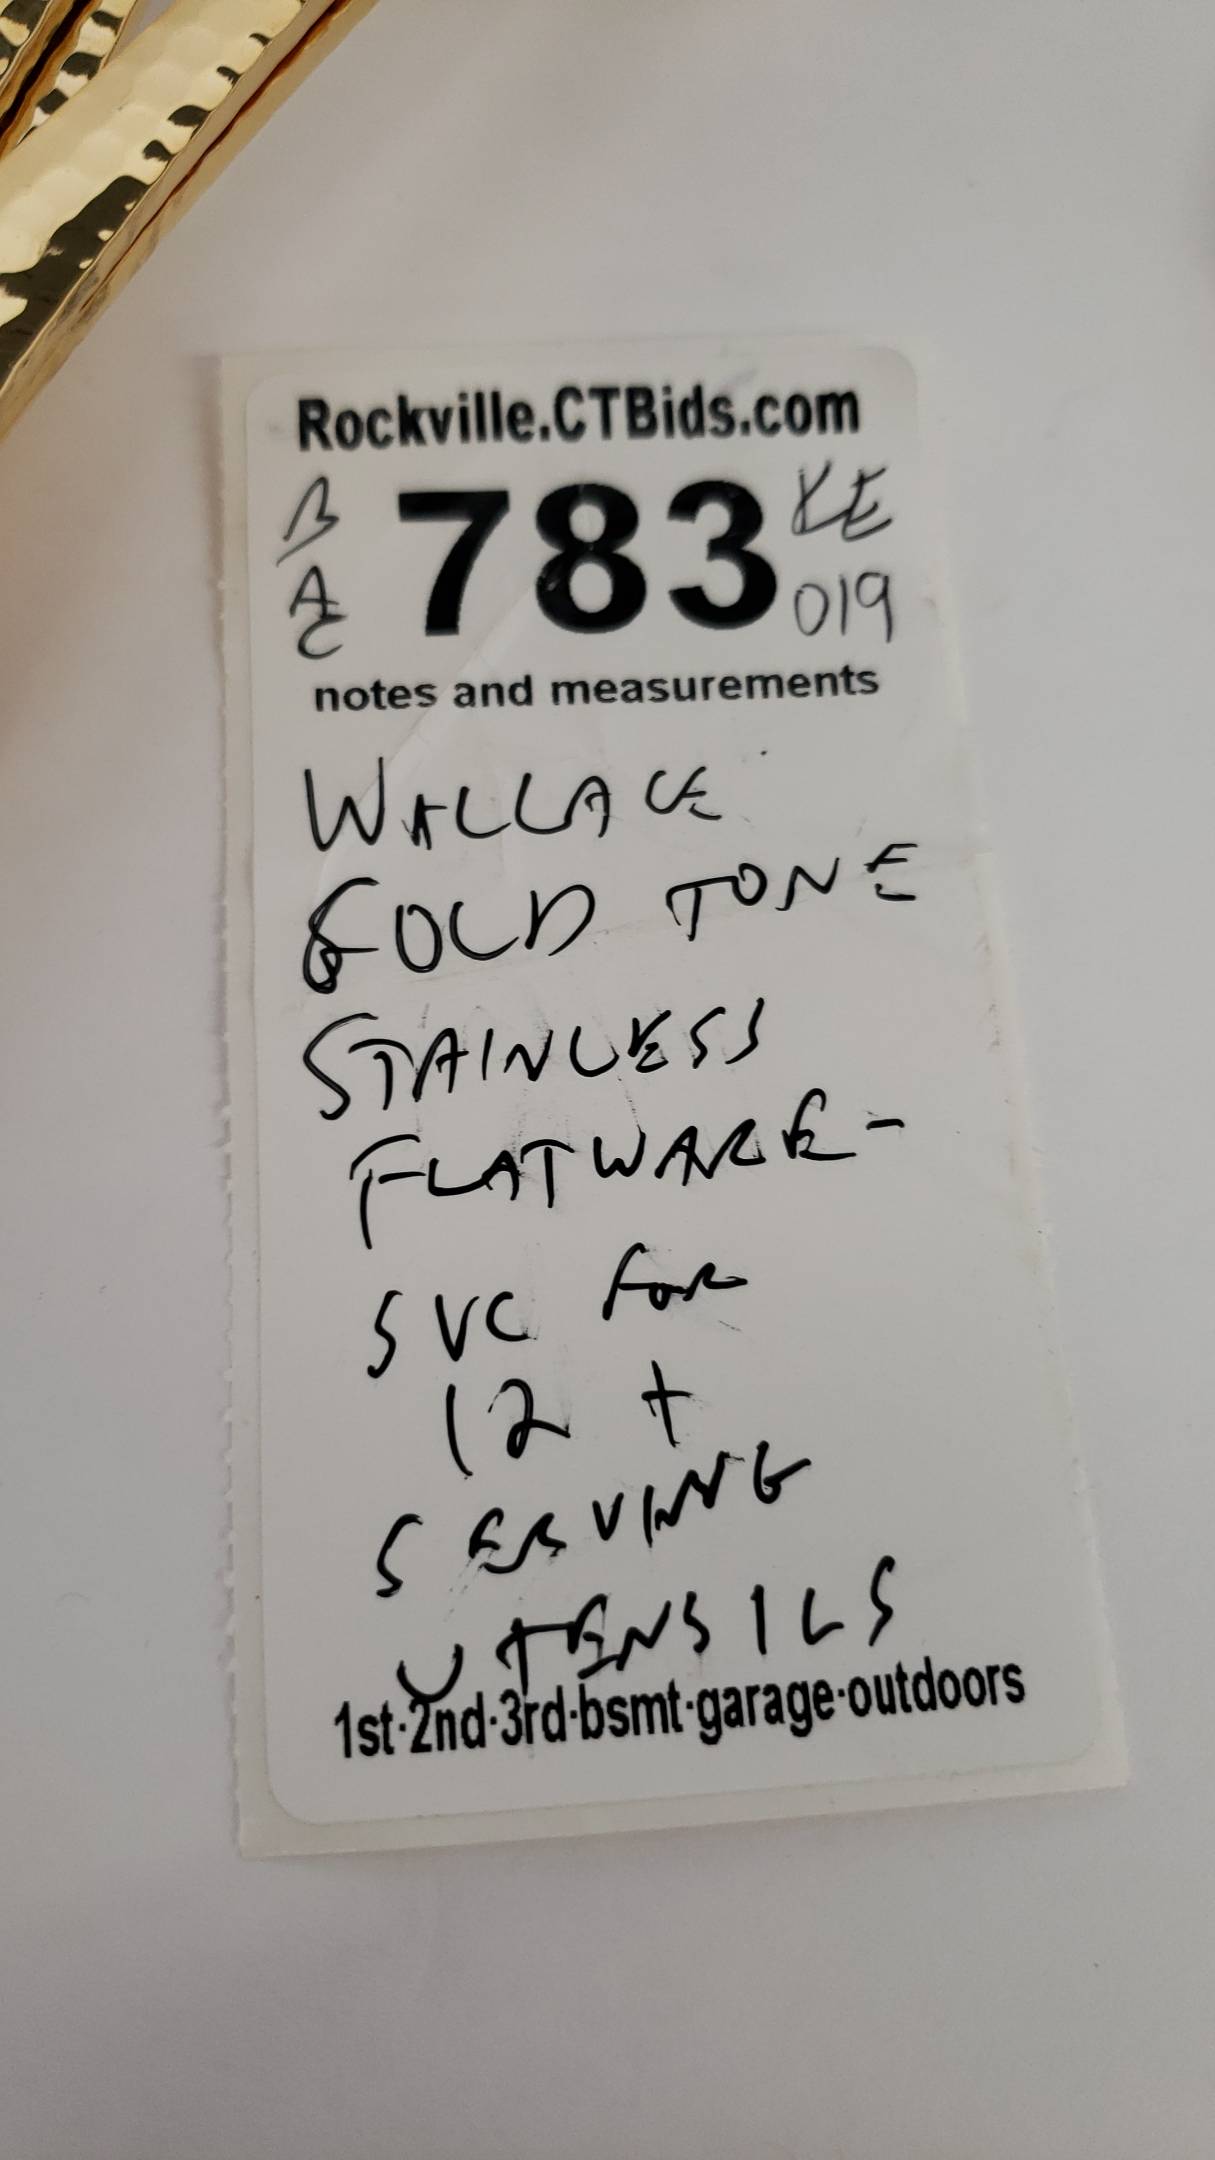 Rockville.CTBids.com
B 783 KE
AC 019
notes and measurements
WALLACE
GOLD TONE
STAINLESS
FLATWARE-
SVC FOR
12 +
SERVING
UTENSILS
1st·2nd·3rd·bsmt·garage·outdoors